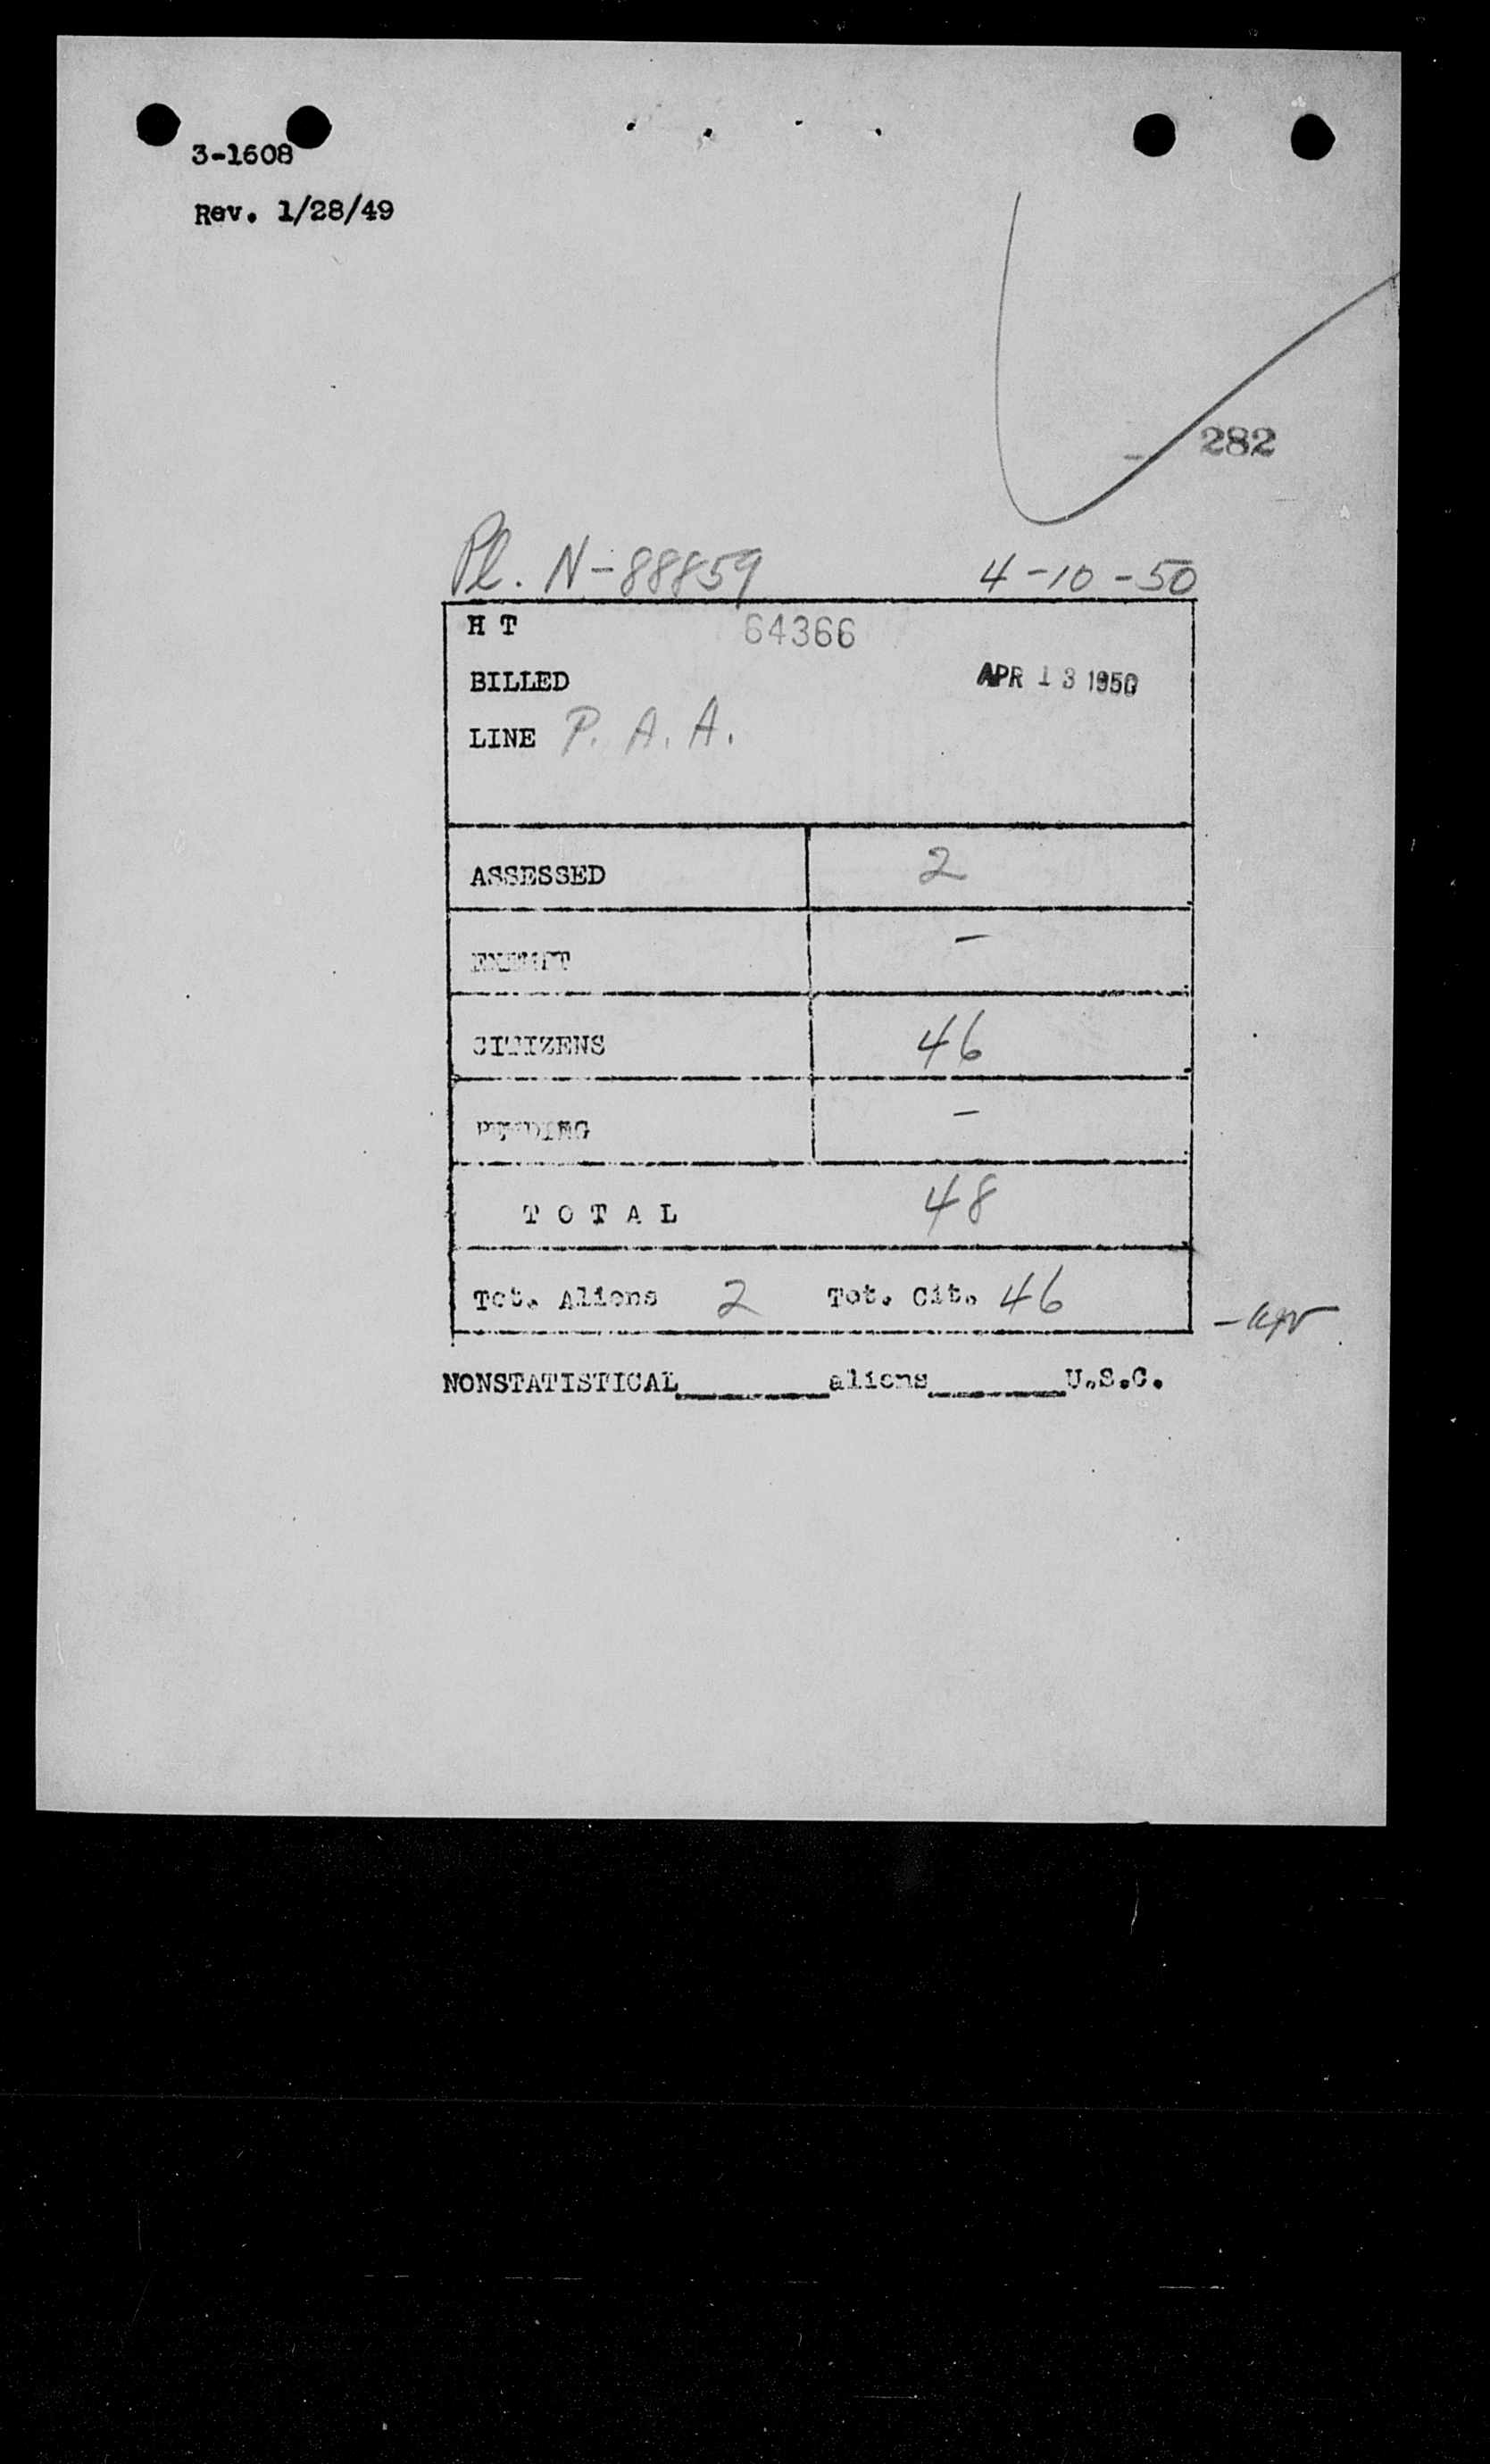 3-1608
Rev. 1/28/49
282
Pl. N-88859 4-10-50
H T 64366
BILLED APR 13 1950
LINE P. A. A.
ASSESSED 2
EXEMPT -
CITIZENS 46
PENDING -
T O T A L 48
Tot. Aliens 2 Tot. Cit. 46
NONSTATISTICAL______aliens______U.S.C.